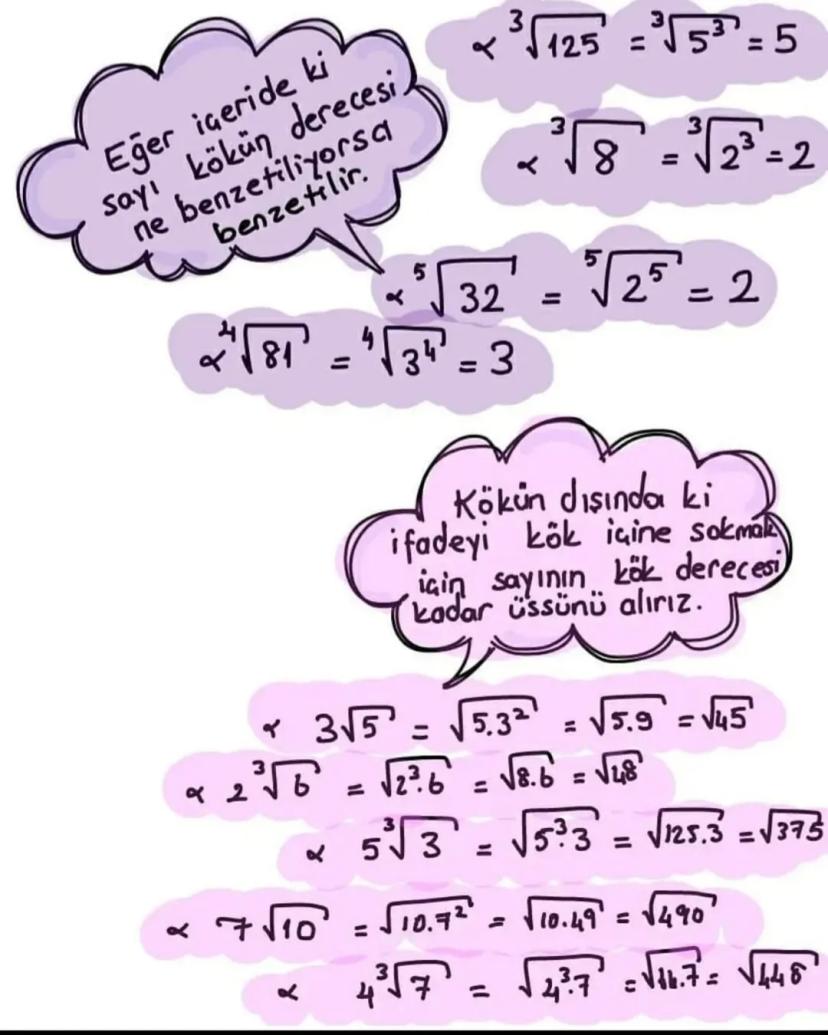 ∝ ³√125 = ³√5³ = 5
∝ ³√8 = ³√2³ = 2
Eğer içeride ki
sayı kökün derecesi
ne benzetiliyorsa
benzetilir.
∝ ⁵√32 = ⁵√2⁵ = 2
∝ ⁴√81 = ⁴√3⁴ = 3
Kökün dışında ki
ifadeyi kök içine sokmak
için sayının kök derecesi
kadar üssünü alırız.
∝ 3√5 = √5.3² = √5.9 = √45
∝ 2³√6 = √2³.6 = √8.6 = √48
∝ 5³√3 = √5³.3 = √125.3 = √375
∝ 7√10 = √10.7² = √10.49 = √490
∝ 4³√7 = √4³.7 = √64.7 = √448